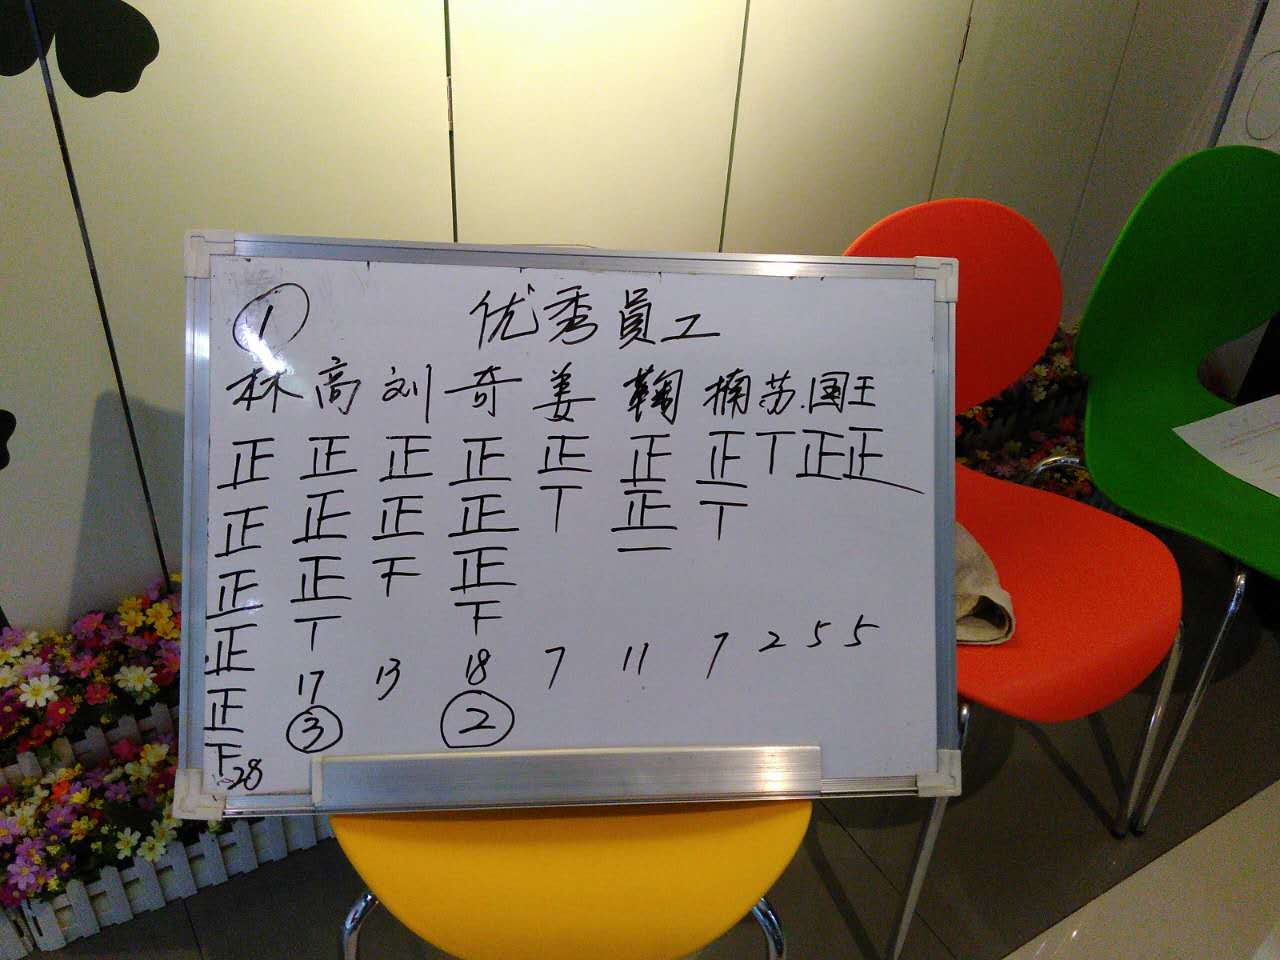 ① 优秀員工
林 高 刘 奇 姜 鞠 楠 苏.国王
正 正 正 正 正 正 正 T 正 正
正 正 正 正 T 正 T
正 正 下 正 一
正 T 下
正 17 13 18 7 11 7 2 5 5
正 ③ ②
下 28